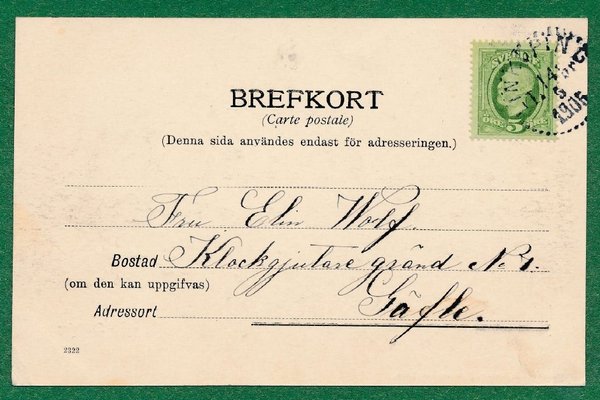 BREFKORT
(Carte postale)
(Denna sida användes endast för adresseringen.)
SVERIGE
5
1906
Fru Elin Wolf.
Bostad Klockgjutare gränd No 1.
(om den kan uppgifvas)
Adressort Gäfle.
2322